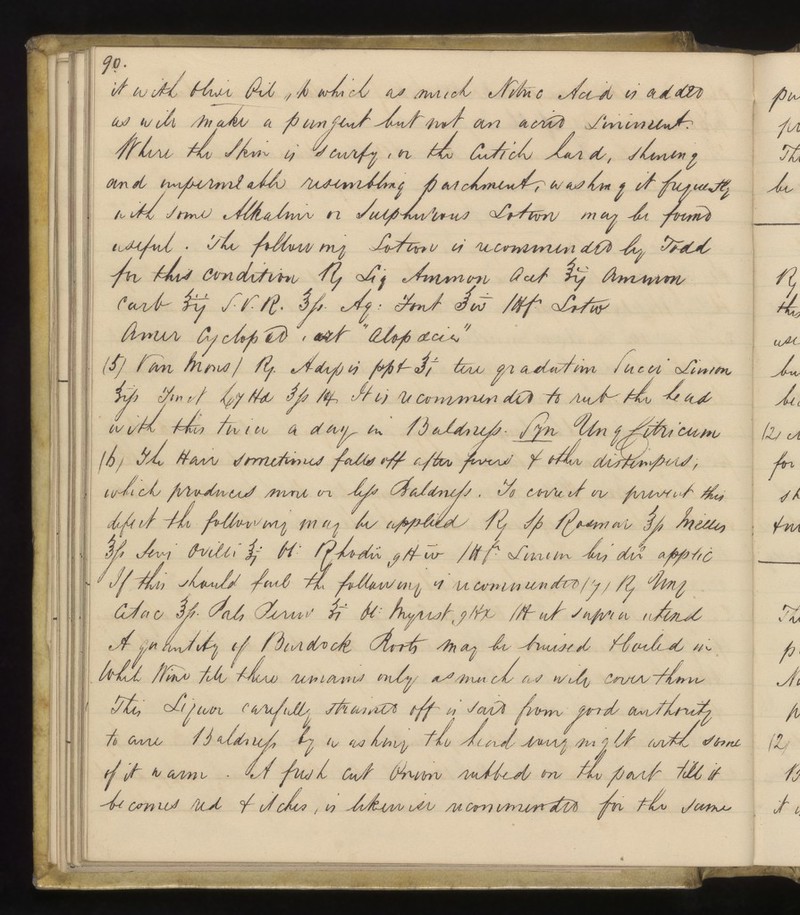 90.
it with Olive Oil, to which as much Nitric Acid is added
as will make a pungent but not an acrid Liniment.
Where the Skin is Scurfy, or the Cuticle hard, shining
and impermeable resembling parchment, washing it frequently
with some Alkaline or Sulphurous Lotion may be found
useful. The following Lotion is recommended by Todd
for this condition ℞ Liq Ammon Acet ʒij Ammon
Carb ʒij S.V.R. ℥ſs. Aq: Font ℥iv M ft Lotio
Amer Cycloped, art "Alopœcia"
(5) Van Mons) ℞. Adipis ppt ℥i tere gradatim Succi Limon
Tinct Lyttæ ʒſs M. It is recommended to rub the head
with this twice a day in Baldneſs. Syn Ung Citricum
(6) The Hair sometimes falls off after fevers & other distempers,
which produces more or leſs Baldneſs. To correct or prevent this
defect the following may be applied ℞ Sp Rosmar ℥ſs Mellis
℥ſs Sevi Ovilli Ol: Rhodii gtt iv M ft Linim bis die applic
If this should fail the following is recommended (7) ℞ Ung
Cetac ℥ſs. Bals Peruv ʒi Ol: Myrist, gtt x M ut supra utend
A quantity of Burdock Roots may be bruised & boiled in
White Wine till there remains only as much as will cover them
This Liquor carefully strained off is said from good authority
to cure Baldneſs by washing the head every night with some
of it warm. A fresh cut Onion rubbed on the part till it
becomes red & itches, is likewise recommended for the same